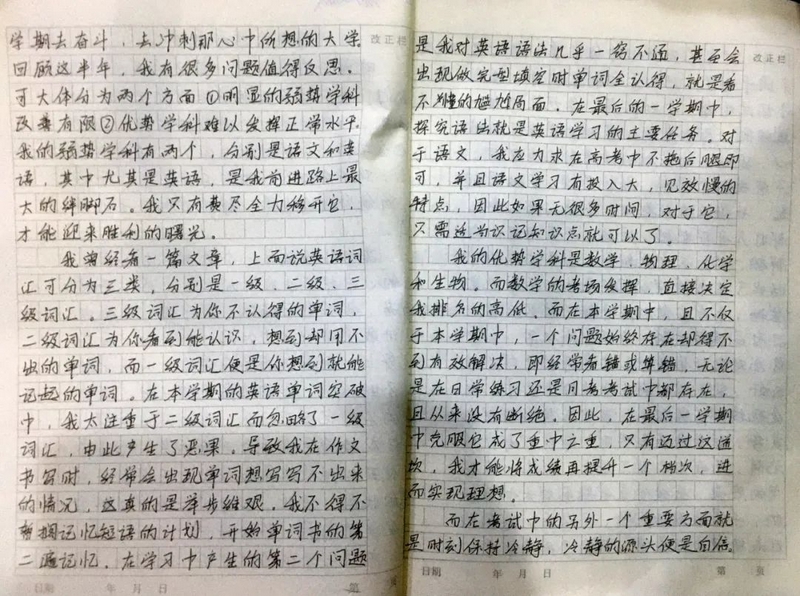 学期去奋斗，去冲刺那心中所想的大学
改正栏
回顾这半年，我有很多问题值得反思。
可大体分为两个方面①明显的弱势学科
改善有限②优势学科难以发挥正常水平
我的弱势学科有两个，分别是语文和英
语，其中尤其是英语，是我前进路上最
大的绊脚石。我只有费尽全力移开它，
才能迎来胜利的曙光。
我曾经看一篇文章，上面说英语词
汇可分为三类。分别是一级、二级、三
级词汇。三级词汇为你不认得的单词，
二级词汇为你看到能认识，想到却用不
出的单词，而一级词汇便是你想到就能
记起的单词。在本学期的英语单词突破
中，我太注重于二级词汇而忽略了一级
词汇，由此产生了恶果。导致我在作文
书写时，经常会出现单词想写写不出来
的情况，这真的是举步维艰。我不得不
暂搁记忆短语的计划，开始单词书的第
二遍记忆。在学习中产生的第二个问题
日期 年 月 日 第 页
是我对英语语法几乎一窍不通，甚至会
改正栏
出现做完型填空时单词全认得，就是看
不懂的尴尬局面。在最后的一学期中，
探究语法就是英语学习的主要任务。对
于语文，我应力求在高考中不拖后腿即
可，并且语文学习有投入大，见效慢的
特点，因此如果无很多时间，对于它，
只需适当识记知识点就可以了。
我的优势学科是数学，物理，化学
和生物。而数学的考场发挥，直接决定
我排名的高低。而在本学期中，且不仅
于本学期中，一个问题始终存在却得不
到有效解决，即经常看错或算错，无论
是在日常练习还是月考考试中都存在，
且从来没有断绝。因此，在最后一学期
中克服它成了重中之重，只有迈过这道
坎，我才能将成绩再提升一个档次，进
而实现理想。
而在考试中的另外一个重要方面就
是时刻保持冷静，冷静的源头便是自信。
日期 年 月 日 第 页